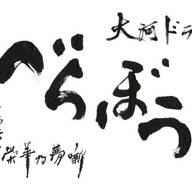 大河ドラ
べらぼう
蔦重
栄華乃夢噺